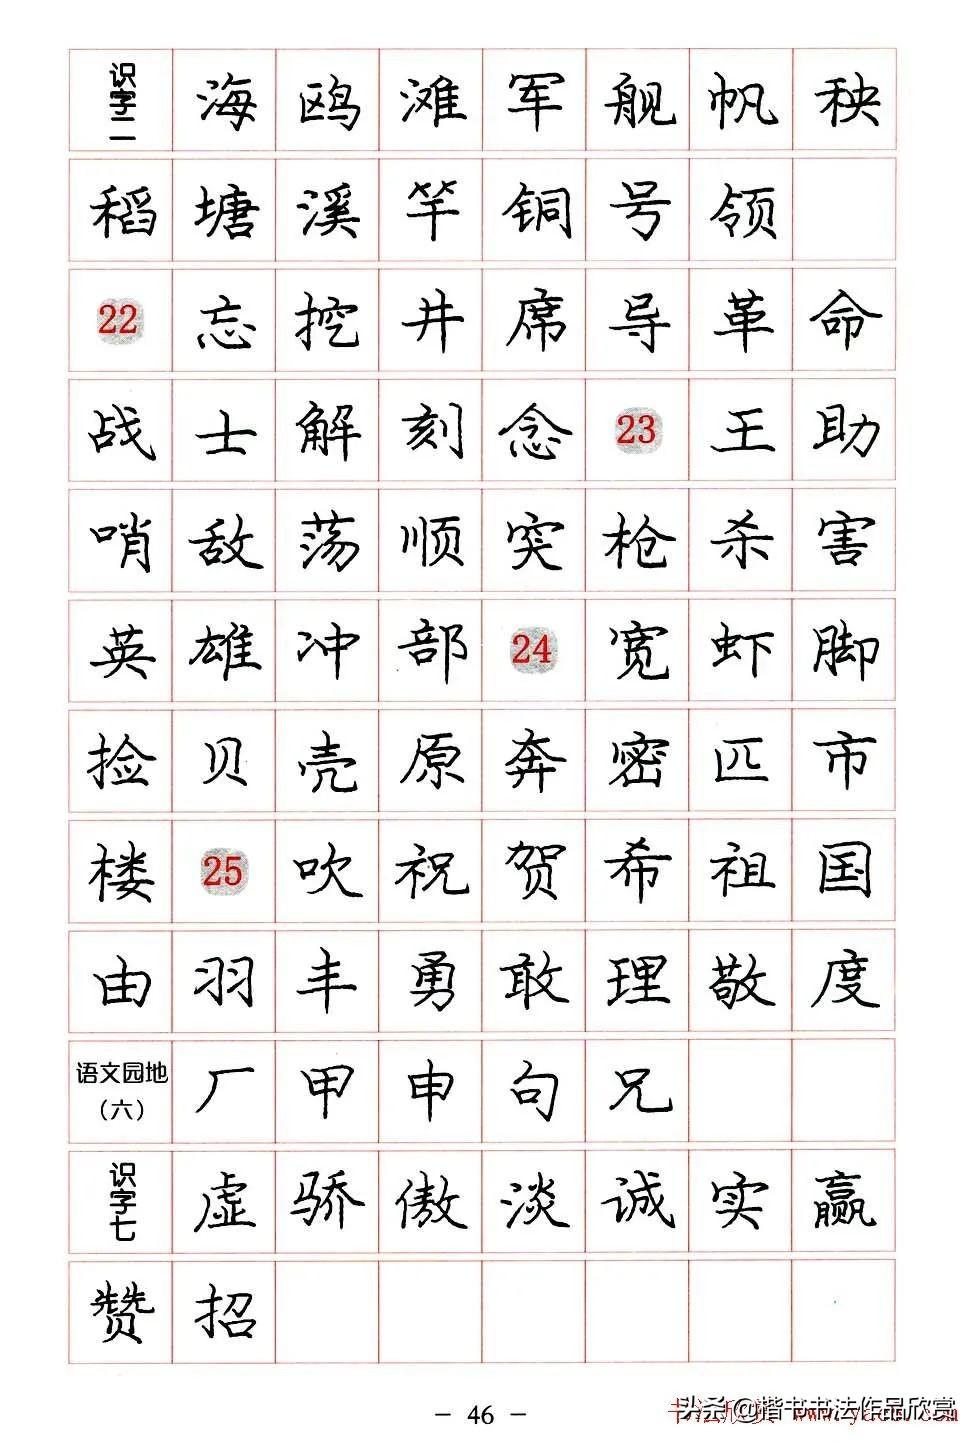 识字二 海 鸥 滩 军 舰 帆 秧
稻 塘 溪 竿 铜 号 领
22 忘 挖 井 席 导 革 命
战 士 解 刻 念 23 王 助
哨 敌 荡 顺 突 枪 杀 害
英 雄 冲 部 24 宽 虾 脚
捡 贝 壳 原 奔 密 匹 市
楼 25 吹 祝 贺 希 祖 国
由 羽 丰 勇 敢 理 敬 度
语文园地（六） 厂 甲 申 句 兄
识字七 虚 骄 傲 淡 诚 实 赢
赞 招
- 46 -
头条@楷书书法作品欣赏